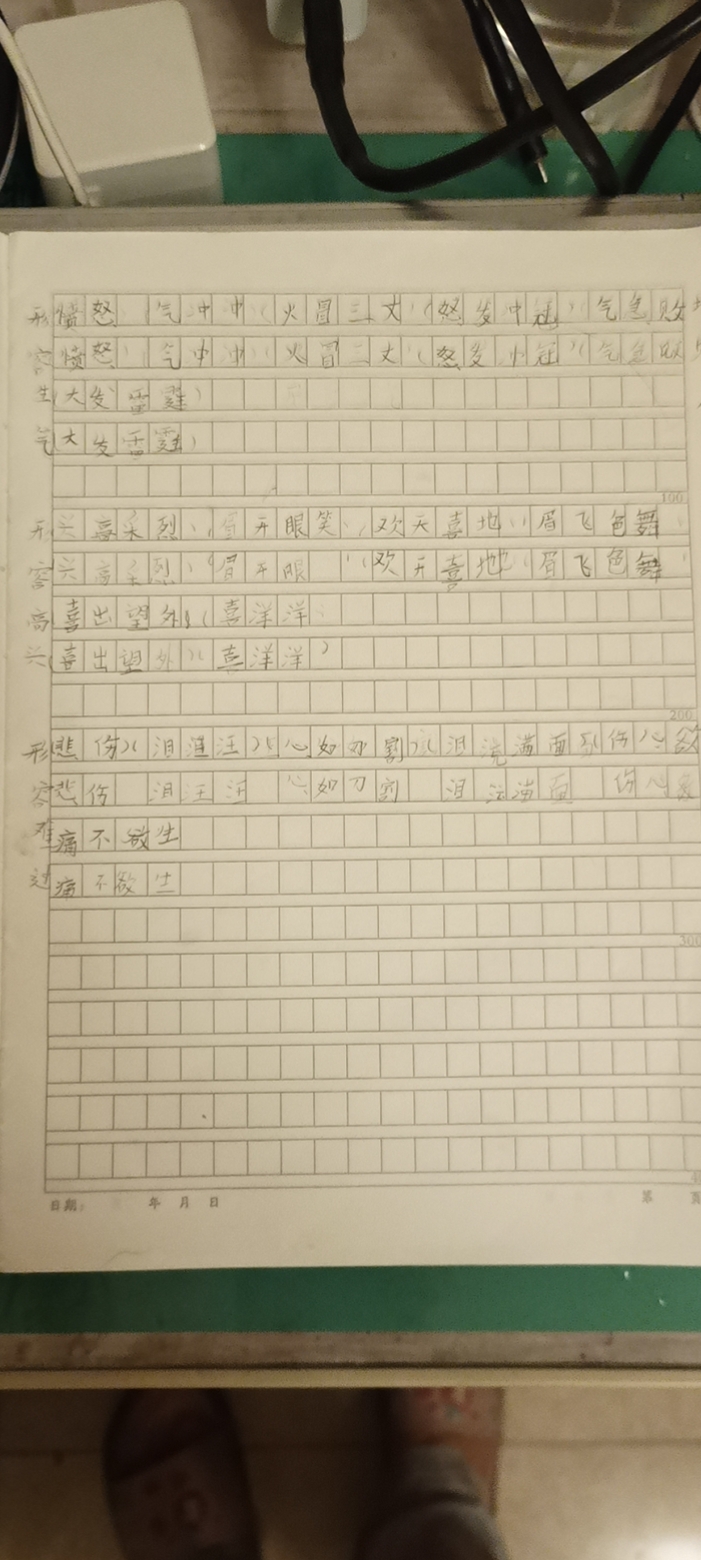 形愤怒）（气冲冲）（火冒三丈）（怒发冲冠）（气急败
容愤怒）（气冲冲）（火冒三丈）（怒发冲冠）（气急败
生（大发雷霆）
气（大发雷霆）
100
形兴高采烈）（眉开眼笑）（欢天喜地）（眉飞色舞）
容兴高采烈）（眉开眼 ）（欢天喜地）（眉飞色舞）
高喜出望外）（喜洋洋）
兴（喜出望外）（喜洋洋）
200
形悲伤）（泪汪汪）（心如刀割）（泪流满面）（伤心欲
容悲伤 泪汪汪 心如刀割 泪流满面 伤心欲
难痛不欲生
过痛不欲生
300
日期： 年 月 日 第 页